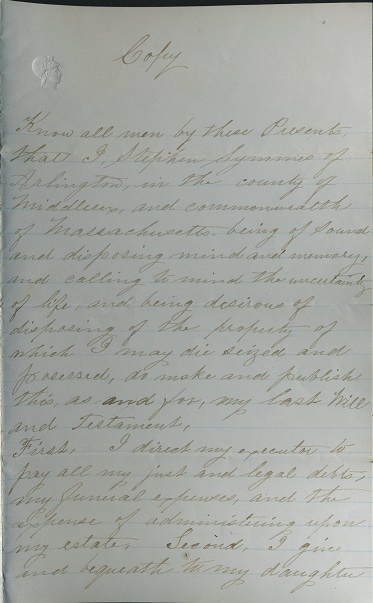 Copy
Know all men by these Presents,
that I, Stephen Symmes of
Arlington, in the county of
Middlesex, and commonwealth
of Massachusetts being of sound
and disposing mind and memory,
and calling to mind the uncertainty
of life, and being desirous of
disposing of the property of
which I may die seized and
posessed, do make and publish
this, as and for, my last Will
and Testament,
First, I direct my executor to
pay all my just and legal debts,
my funeral expenses, and the
expense of administering upon
my estate. Second, I give
and bequeath to my daughter